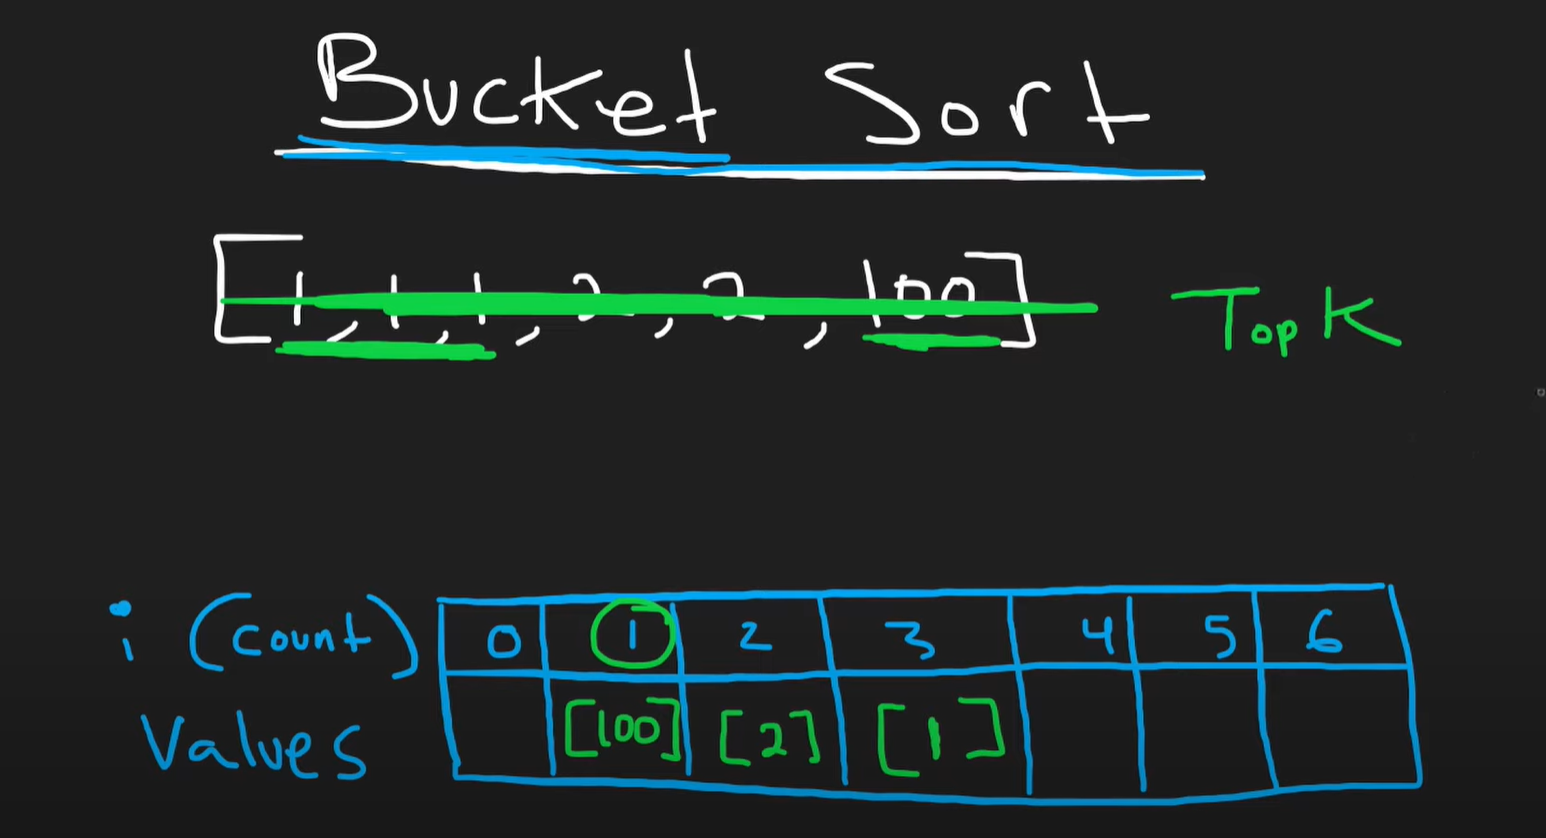 Bucket Sort
[1, 1, 1, 2, 2, 100] Top K
i (count) 0 1 2 3 4 5 6
Values [100] [2] [1]